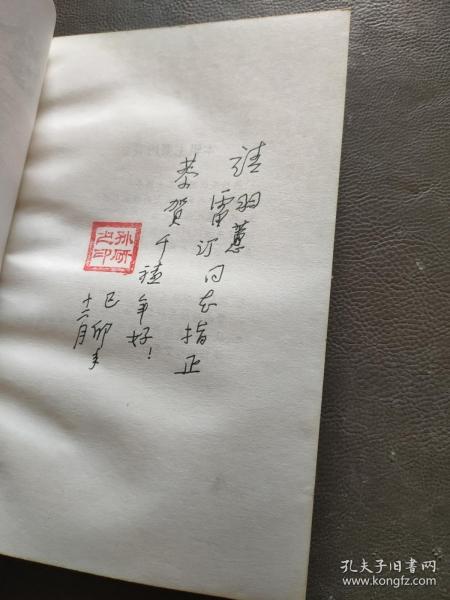 请
羽蕙
雷汀同志指正
恭贺千禧年好！
己卯年
十二月
孙研之印
孔夫子旧书网
www.kongfz.com